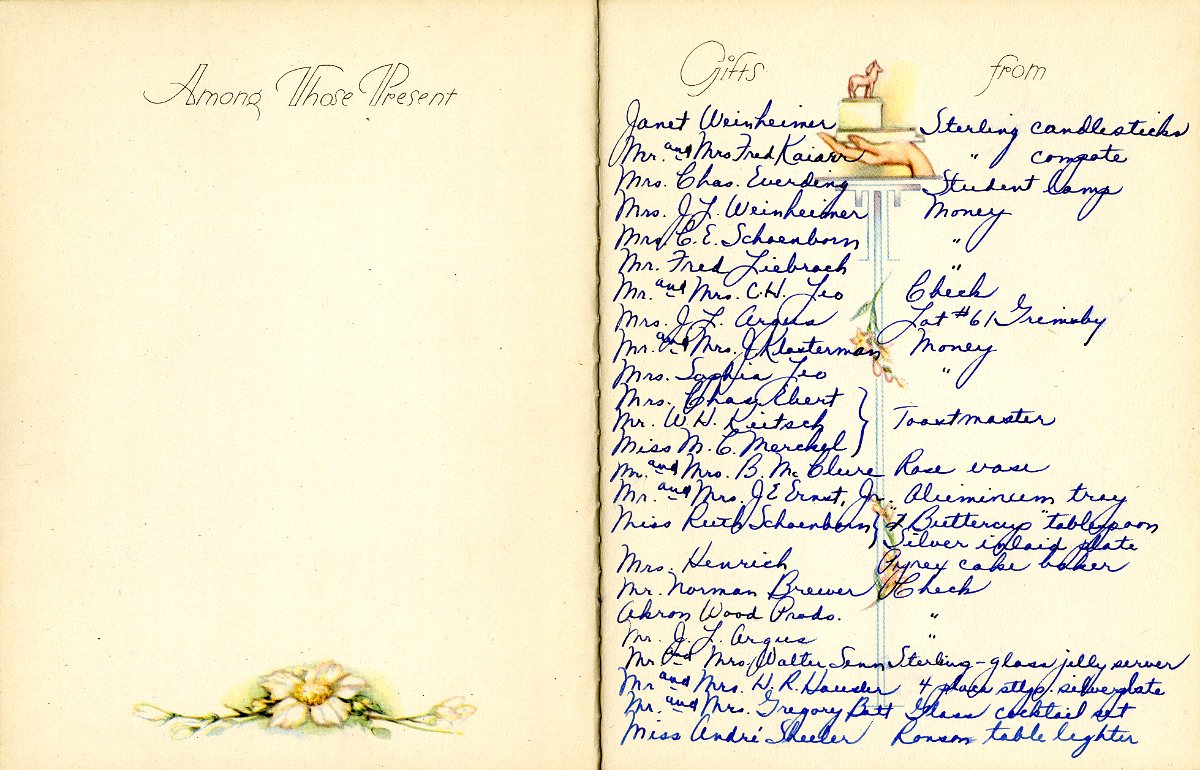 Among Those Present
Gifts from
Janet Weinheimer Sterling candlesticks
Mr. and Mrs Fred Kaiarr " compote
Mrs. Chas. Everding Student lamp
Mrs. J. L. Weinheimer Money
Mrs C. E. Schoenborn "
Mr. Fred Liebrach "
Mr. and Mrs. C. H. Leo Check
Mrs. J. L. Argus Lot #61 Grimsby
Mr. and Mrs. J Klosterman Money
Mrs. Sophia Leo "
Mrs. Chas. Ebert
Mr. W. H. Keitsch Toastmaster
Miss M. C. Merckel
Mr. and Mrs. B. McClure Rose vase
Mr. and Mrs. J E Ernst, Jr. Aluminum tray
Miss Ruth Schoenborn "Buttercup" tablespoon
Silver inlaid plate
Mrs. Henrich Pyrex cake baker
Mr. Norman Brewer Check
Akron Wood Prods. "
Mr. J. L. Argus "
Mr and Mrs. Walter Senn Sterling-glass jelly server
Mr and Mrs. H. R. Hausler 4 place stgs. silverplate
Mr. and Mrs. Gregory Batt Glass cocktail set
Miss André Sheeler Ronson table lighter